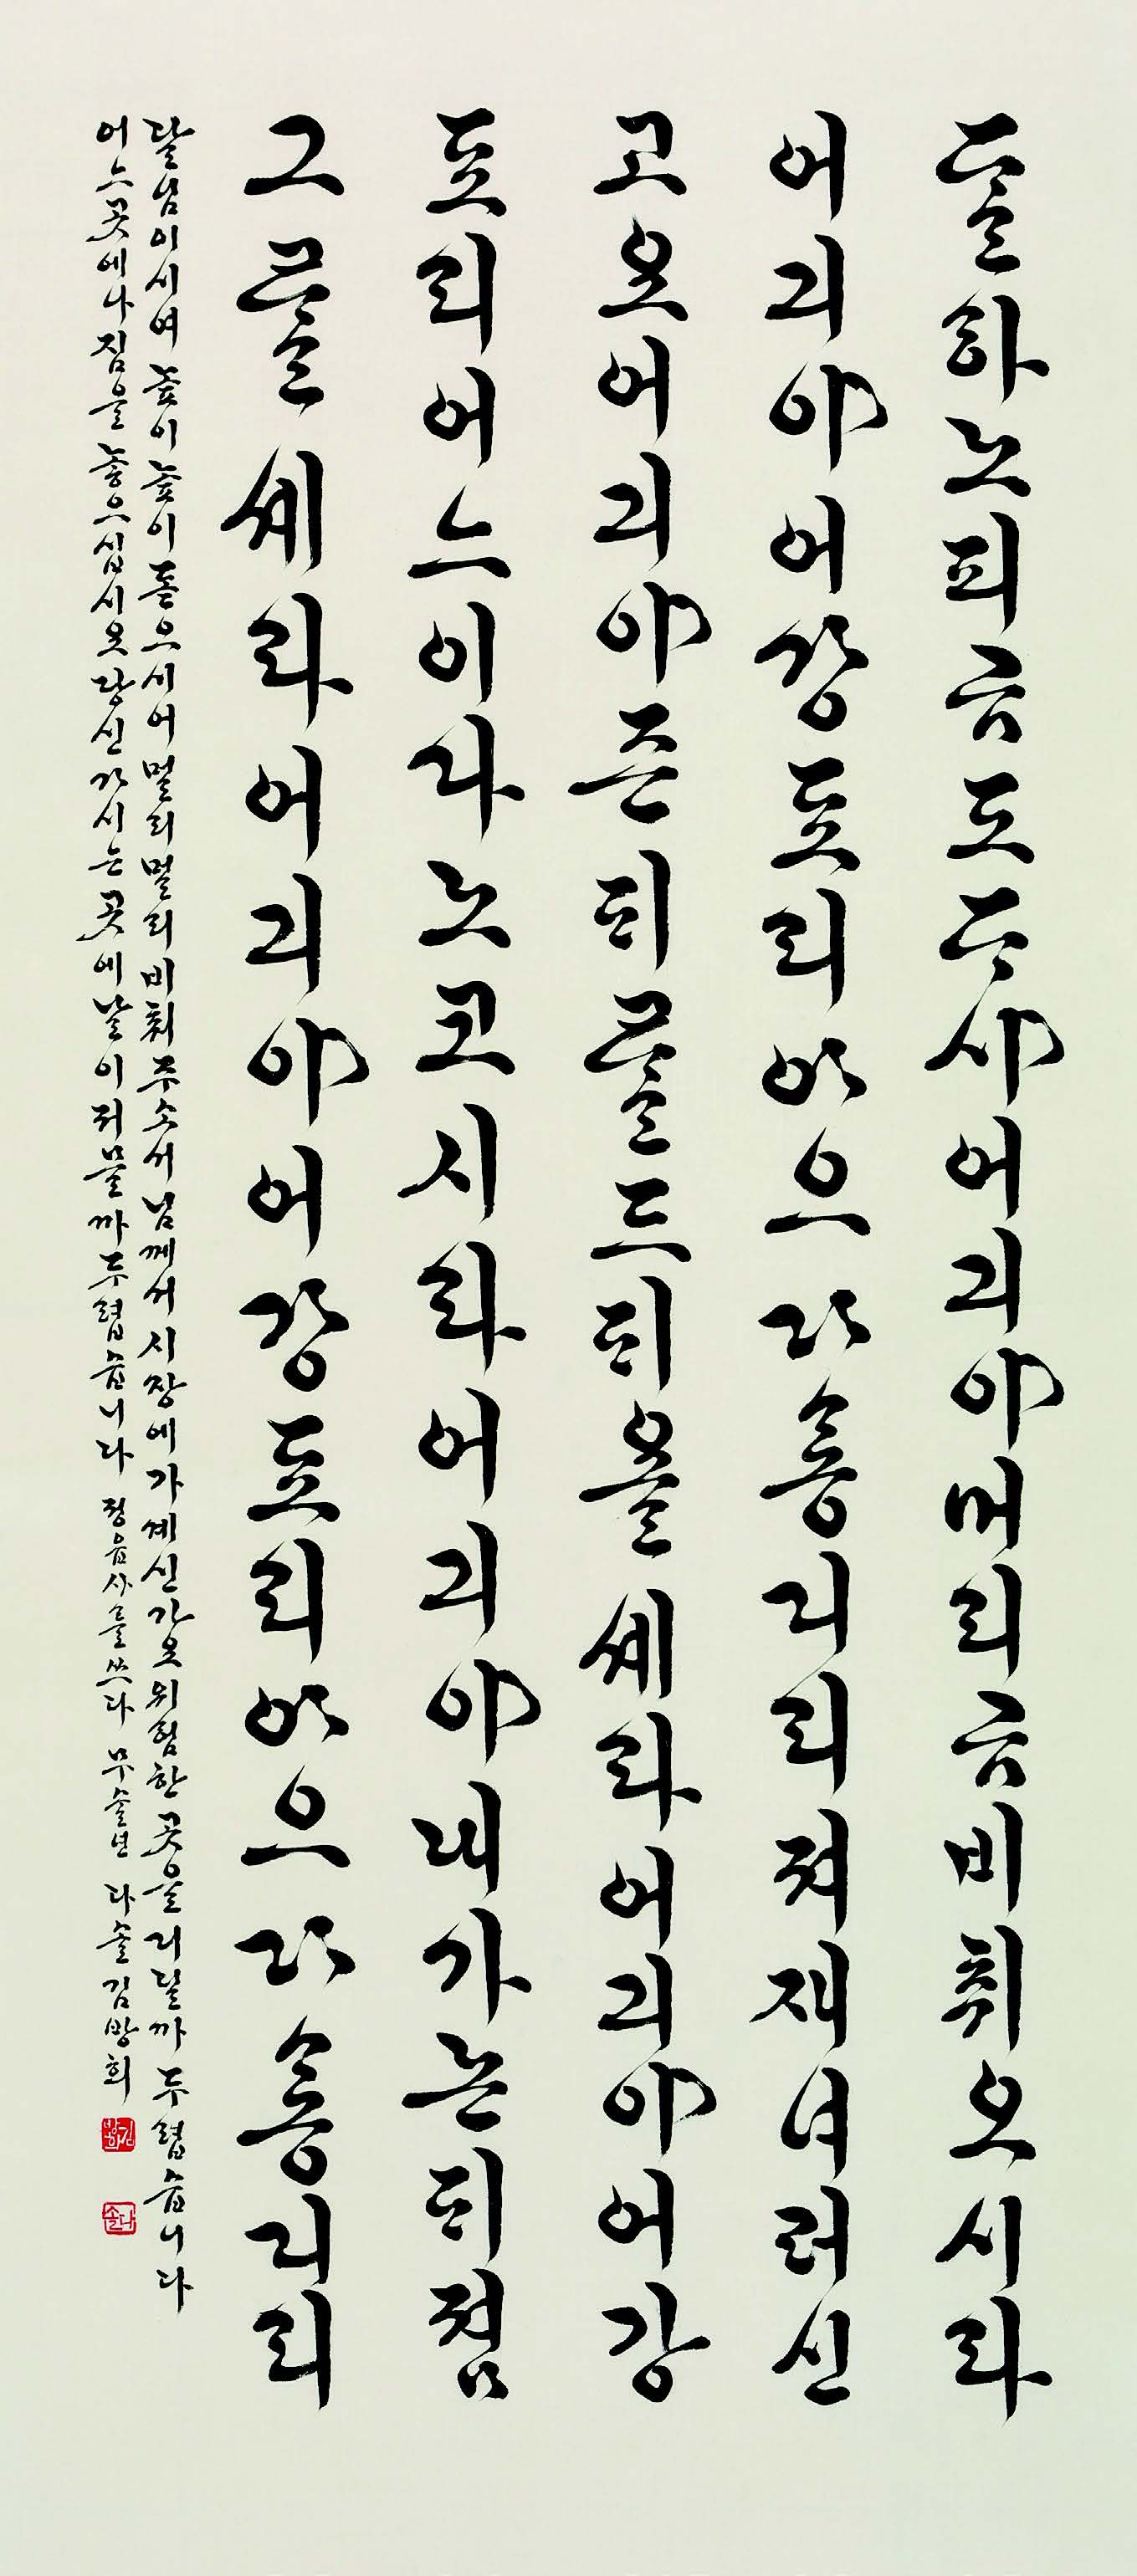 ᄃᆞᆯ하노피곰도ᄃᆞ샤어긔야머리곰비취오시라
어긔야어강됴리아으다롱디리져재녀러신
고요어긔야즌ᄃᆡᄅᆞᆯ드ᄃᆡ욜셰라어긔야어강
됴리어느이다노코시라어긔야내가논ᄃᆡ졈
그ᄅᆞᆯ셰라어긔야어강됴리아으다롱디리
달님이시여 높이높이 돋으시어 멀리멀리 비취주소서 님께서 시장에 가 계신가요 위험한 곳을 디딜까 두렵습니다
어느 곳에나 짐을 놓으십시오 당신 가시는 곳에 날이 저물까 두렵습니다 정읍사를 쓰다 무술년 다솔 김방희